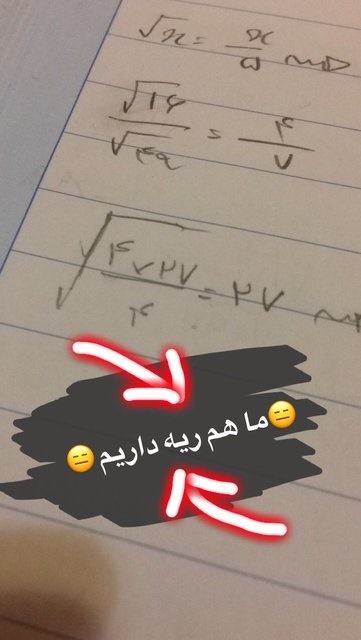 √x = x/۵
√۱۶/√۴۹ = ۴/۷
= ۲۷
ما هم ریه داریم